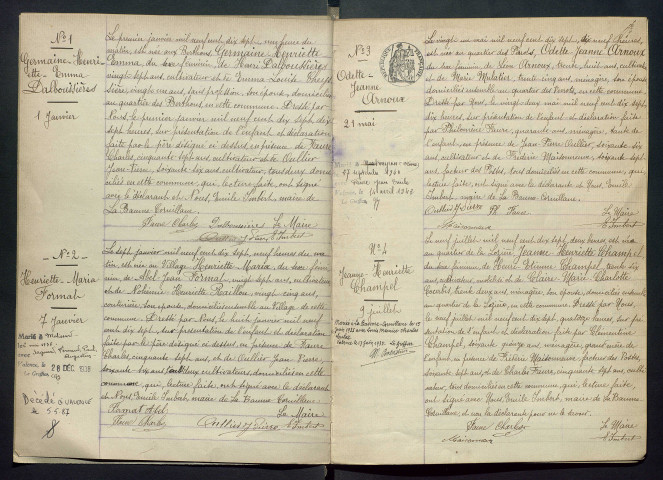 N° 1
Germaine-Henri-
ette-Emma
Dalboussières
1 Janvier
Le premier janvier mil neuf cent dix sept, une heure du
matin, est née aux Berthons Germaine Henriette
Emma du sexe féminin, de Henri Dalboussière
vingt sept ans, cultivateur et de Emma Louise
sière, vingt cinq ans, sans profession, son épouse, domiciliés
au quartier des Berthons en cette commune. Dressé par
Nous, le premier janvier mil neuf cent dix sept, dix
sept heures, sur présentation de l'enfant et déclaration
faite par le père désigné ci dessus, en présence de Faure
Charles, cinquante sept ans, cultivateur et de Oullier
Jean Pierre, soixante dix ans, cultivateur, tous domi-
ciliés en cette commune qui, lecture faite, ont signé
avec le déclarant et Nous, Emile Imbert, maire de
La Baume Cornillane.
Faure Charles Dalboussières Le Maire
Oullier J Pierre E Imbert
N° 2
Henriette-Maria
Fornat
7 Janvier
Marié à
28 DEC 1938
Décédé à VALENCE
le 5-5-87
Le sept janvier mil neuf cent dix sept, neuf heures du ma-
tin, est née au Village, Henriette Maria, du sexe fémi-
nin, de Abel Jean Fornat, vingt sept ans, cultivateur
et de Henriette Raillon, vingt cinq ans,
couturière, son épouse, domiciliés ensemble au Village de cette
commune. Dressé par Nous, le huit janvier mil neuf
cent dix sept, sur présentation de l'enfant et déclaration
faite par le père désigné ci dessus, en présence de Faure
Charles, cinquante sept ans, et de Oullier Jean Pierre,
soixante dix ans, tous deux cultivateurs, domiciliés en cette
commune qui, lecture faite, ont signé avec le déclarant
et Nous, Emile Imbert, maire de La Baume Cornillane.
Fornat Abel Le Maire
Faure Charles Oullier J Pierre E Imbert
N° 3
Odette-
Jeanne
Arnoux
21 mai
Le vingt un mai mil neuf cent dix sept, dix neuf heures,
est née au quartier des Parots, Odette Jeanne Arnoux
du sexe féminin de Léon Arnoux, trente huit ans, cultivateur
et de Marie Mulatier, trente cinq ans, ménagère, son épouse
domiciliés ensemble au quartier des Parots, en cette commune.
Dressé par Nous, le vingt deux mai mil neuf cent dix sept,
dix heures, sur présentation de l'enfant et déclaration faite
par Philomène Faure, quarante ans, ménagère, tante de
l'enfant, en présence de Jean Pierre Oullier, soixante dix
ans, cultivateur et de Frédéric Maisonneuve, soixante sept
ans, facteur des Postes, tous domiciliés en cette commune, qui,
lecture faite, ont signé avec le déclarant et Nous, Emile
Imbert, maire de La Baume Cornillane.
Oullier J Pierre Ph Faure Le Maire
Maisonneuve E Imbert
N° 4
Jeanne-Henriette
Champel
9 juillet
Le neuf juillet mil neuf cent dix sept, deux heures est née
au quartier de la Lozière, Jeanne Henriette Champel,
du sexe féminin, de Henri Etienne Champel, trente six
ans, cultivateur, mobilisé et de Claire Marie Charlotte
trente deux ans, ménagère, son épouse, domiciliés ensemble
au quartier de la Lozière, en cette commune. Dressé par Nous,
le neuf juillet, mil neuf cent dix sept, quatorze heures, sur pré-
sentation de l'enfant et déclaration faite par Clémentine
Champel, soixante quinze ans, ménagère, grand'mère de
l'enfant, en présence de Frédéric Maisonneuve, facteur des Postes,
soixante sept ans, et de Charles Faure, cinquante sept ans, cul-
tivateur, tous domiciliés en cette commune, qui, lecture faite,
ont signé avec Nous, Emile Imbert, maire de La Baume
Cornillane, et non la déclarante pour ne le savoir.
Faure Charles Le Maire
Maisonneuve E Imbert